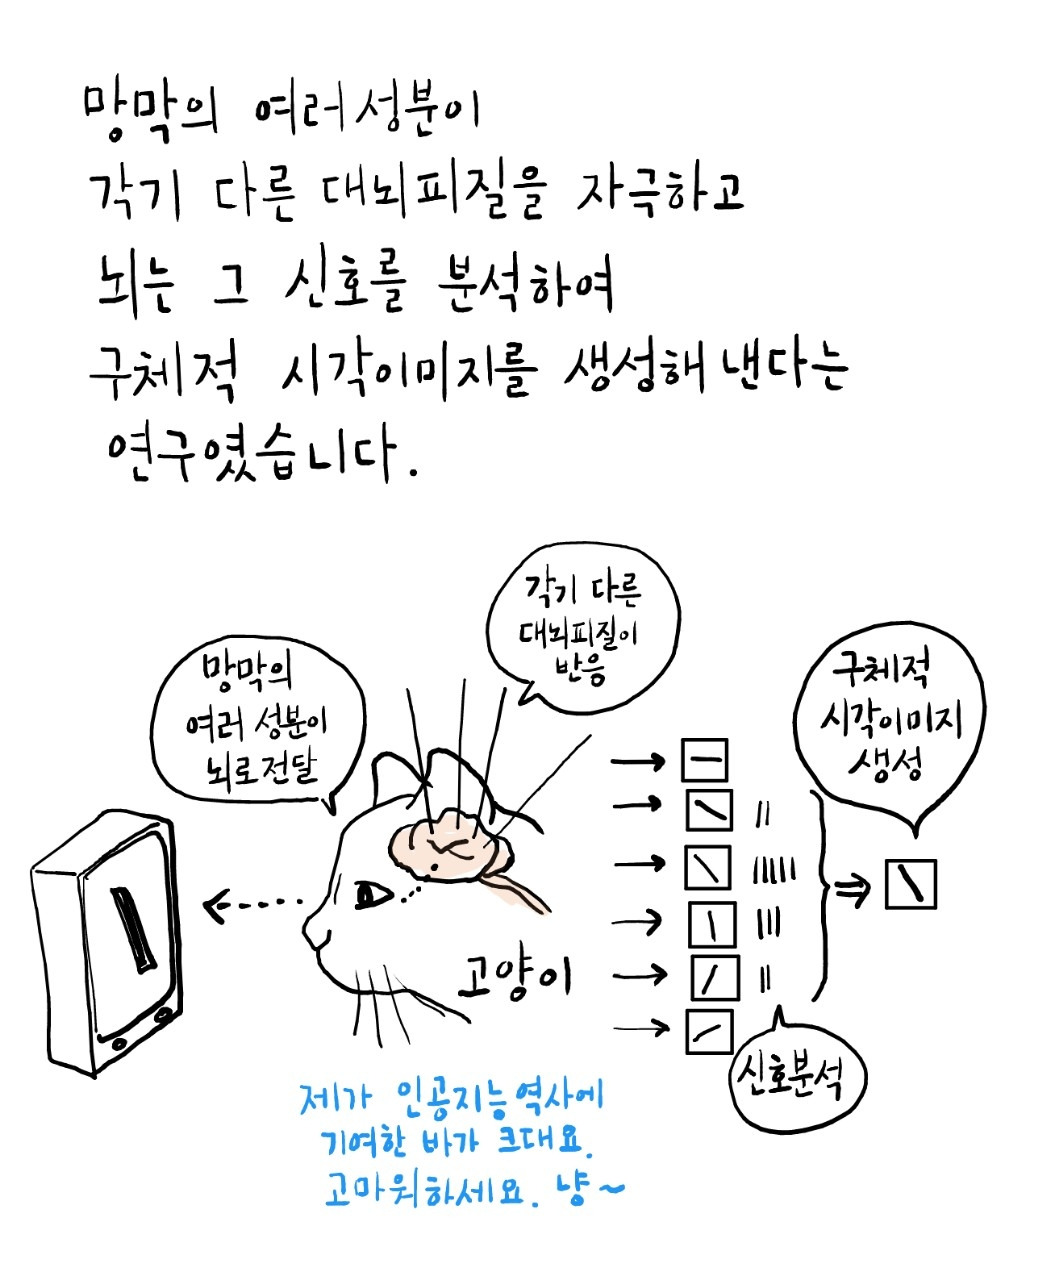 망막의 여러성분이
각기 다른 대뇌피질을 자극하고
뇌는 그 신호를 분석하여
구체적 시각이미지를 생성해 낸다는
연구였습니다.
각기 다른
대뇌피질이
반응
망막의
여러 성분이
뇌로전달
구체적
시각이미지
생성
고양이
신호분석
제가 인공지능역사에
기여한 바가 크대요.
고마워하세요. 냥~